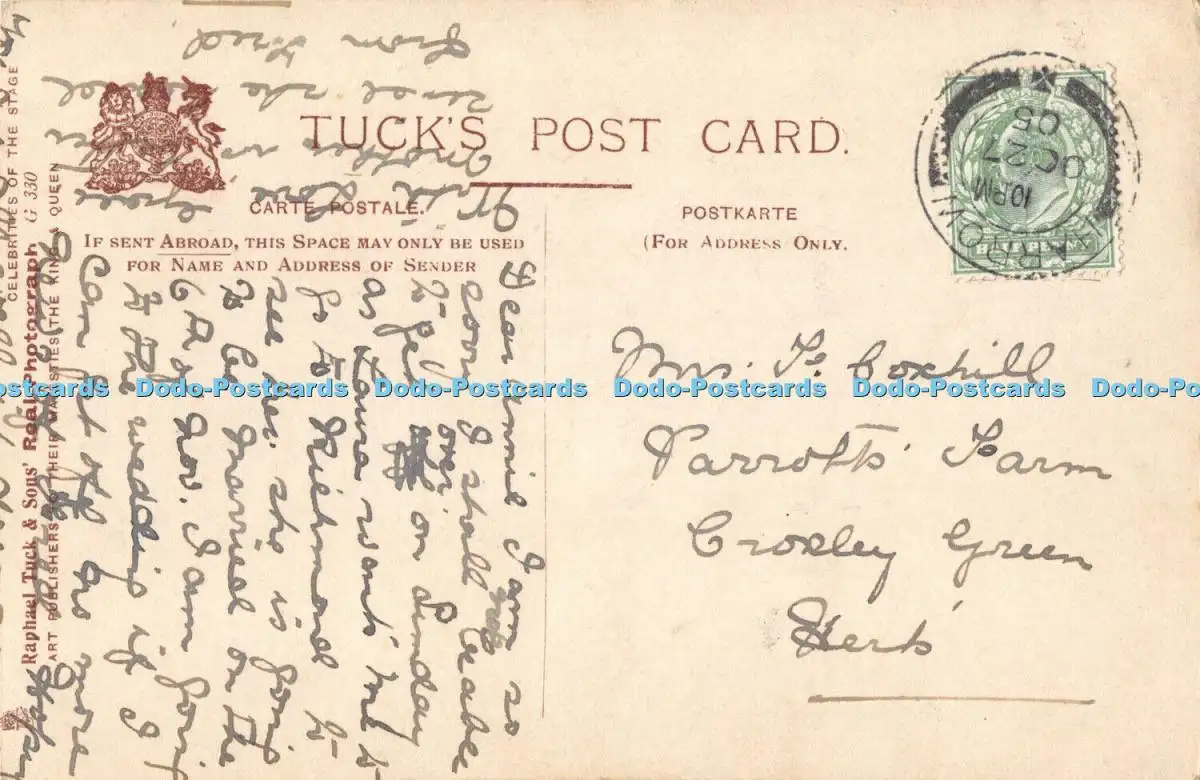 TUCK'S POST CARD.
CARTE POSTALE.
POSTKARTE
IF SENT ABROAD, THIS SPACE MAY ONLY BE USED
FOR NAME AND ADDRESS OF SENDER
(FOR ADDRESS ONLY.
CELEBRITIES OF THE STAGE
Raphael Tuck & Sons' Real Photograph G 330
ART PUBLISHERS TO THEIR MAJESTIES THE KING & QUEEN
HALFPENNY
10 PM
OC 27
05
Mrs. F. Coxhill
Parrotts' Farm
Croxley Green
Herts
Dear Annie I am so
sorry I shall be able
to get over on Sunday
as Laura wants me to
go to Richmond to
see her she is going
to be married on the
6th of Nov. I am going
to the wedding if I
can get off no more
With Love
Mother is
send the
from Fred
Dodo-Postcards Dodo-Postcards Dodo-Postcards Dodo-Postcards Dodo-Postcards Dodo-Postcards